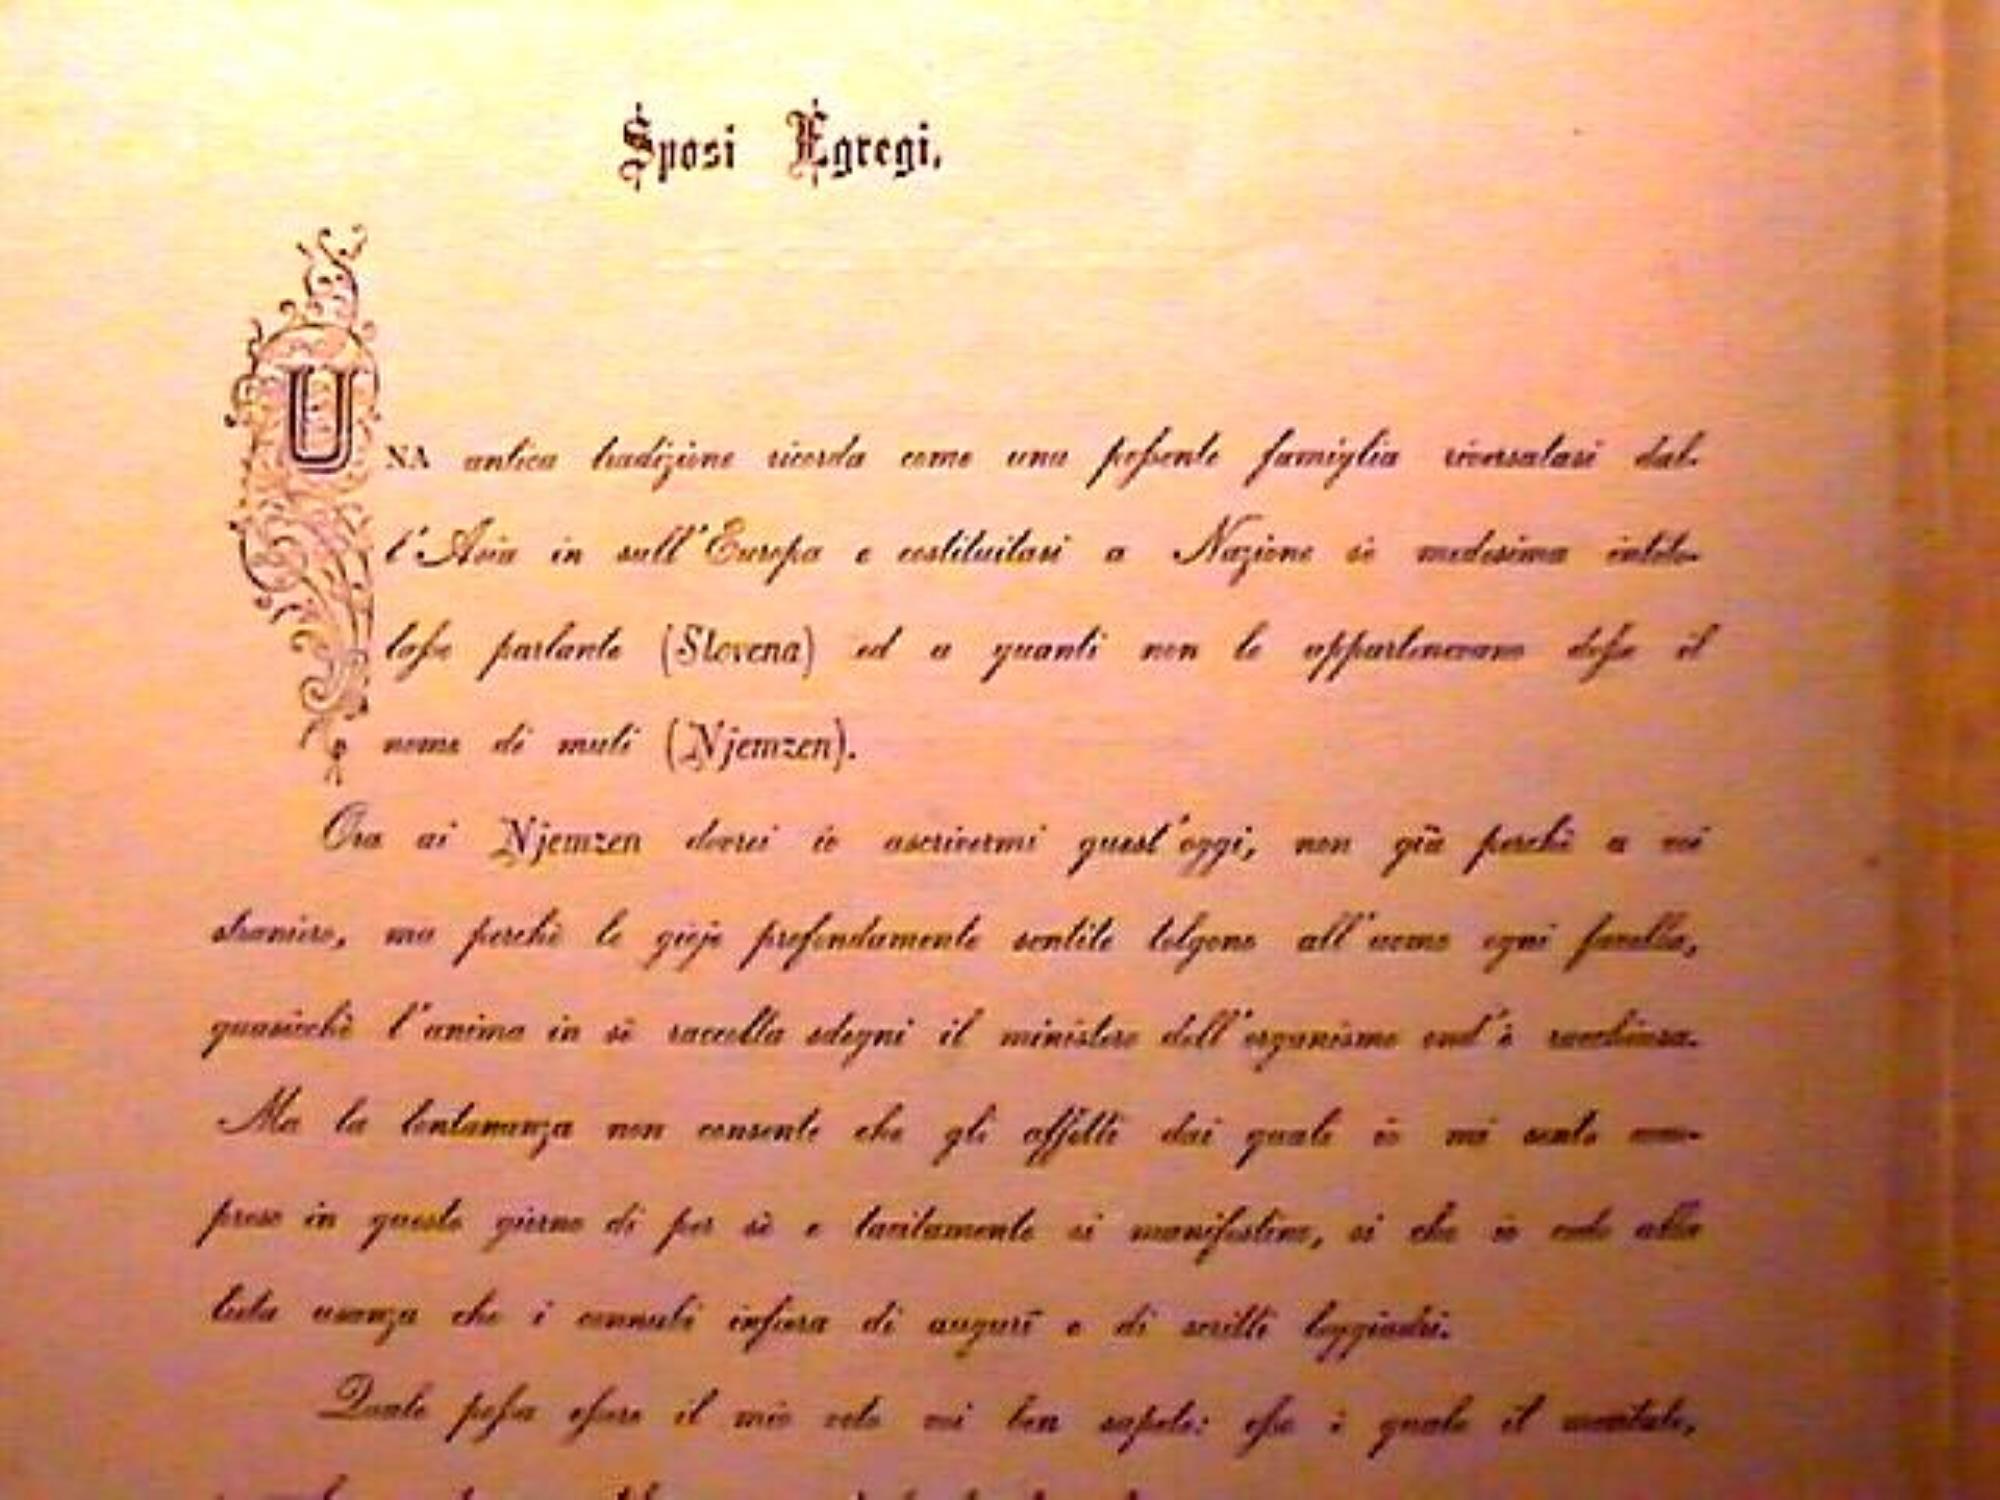 Sposi Egregi,
UNA antica tradizione ricorda come una possente famiglia riversatasi dal-
l'Asia in sull'Europa e costituitasi a Nazione sè medesima intito-
lasse parlante (Slovena) ed a quanti non le appartenevano desse il
nome di muti (Njemzen).
Ora ai Njemzen dovrei io ascrivermi quest'oggi, non già perchè a voi
straniero, ma perchè le gioje profondamente sentite tolgono all'uomo ogni favella,
quasicchè l'anima in sè raccolta sdegni il ministero dell'organismo ond'è racchiusa.
Ma la lontananza non consente che gli affetti dai quali io mi sento com-
preso in questo giorno di per sè e tacitamente si manifestino, si che io cedo alla
lieta usanza che i connubi infiora di augurî e di scritti leggiadri.
Quale possa essere il mio voto voi ben sapete: esso è quale il meritate,